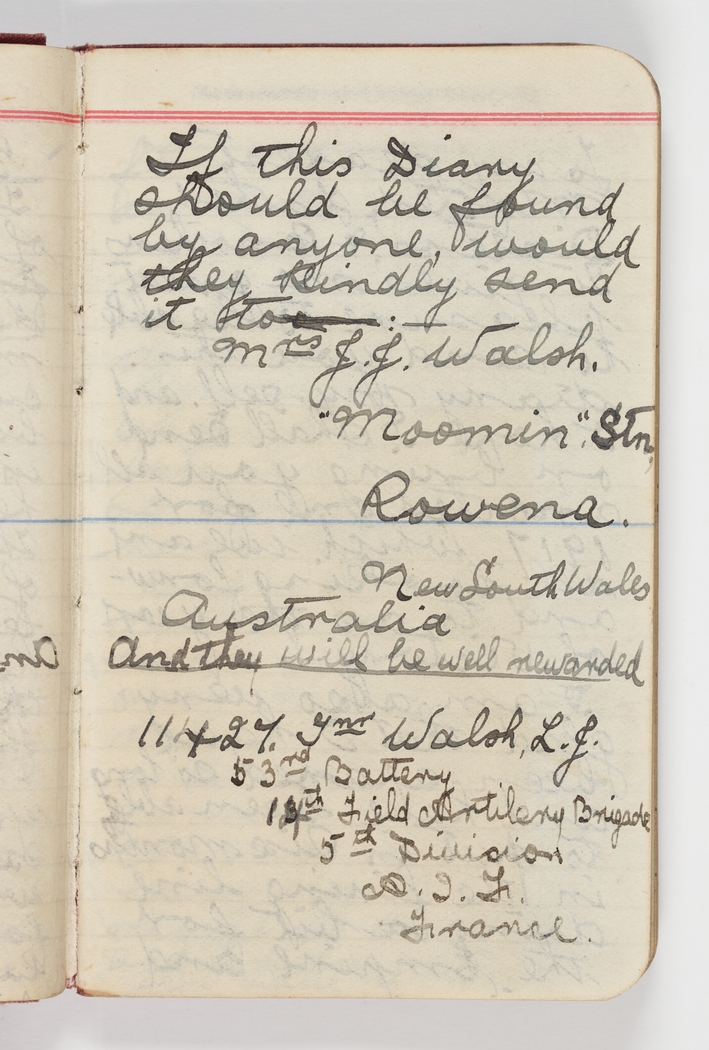 If this Diary
should be found
by anyone, would
they kindly send
it to :—
Mrs J. J. Walsh.
"Moomin" Stn,
Rowena.
New South Wales
Australia
And they will be well rewarded
11427. Gnr Walsh, L. J.
53rd Battery
14th Field Artilery Brigade
5th Division
A. I. F.
France.